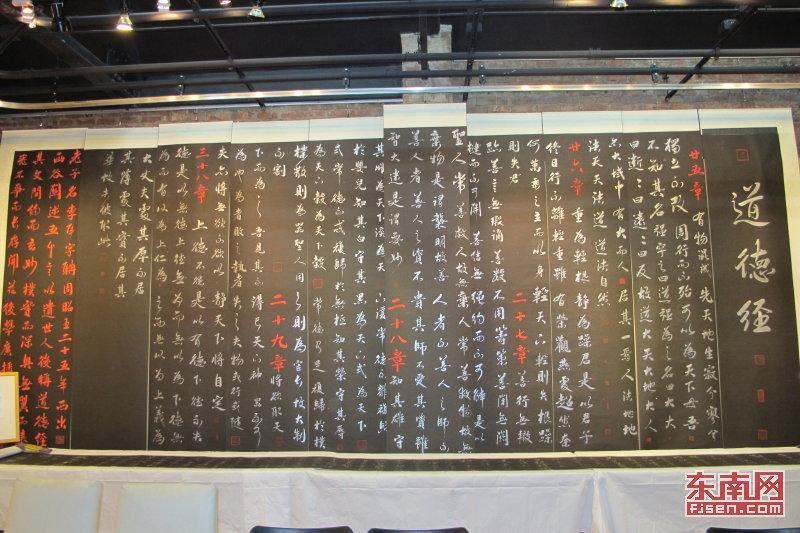 道德經
廿五章 有物混成 先天地生 寂兮寥兮
獨立不改 周行而不殆 可以為天下母 吾
不知其名 強字之曰道 強為之名曰大 大
曰逝 逝曰遠 遠曰反 故道大 天大 地大 人
亦大 域中有四大 而人居其一焉 人法地 地
法天 天法道 道法自然
廿六章 重為輕根 靜為躁君 是以君子
終日行不離輜重 雖有榮觀 燕處超然 奈
何萬乘之主 而以身輕天下 輕則失根 躁
則失君 二十七章 善行無轍
跡 善言無瑕謫 善數不用籌策 善閉無關
楗而不可開 善結無繩約而不可解 是以
聖人常善救人 故無棄人 常善救物 故無
棄物 是謂襲明 故善人者 不善人之師 不
善人者 善人之資 不貴其師 不愛其資 雖
智大迷 是謂要妙 二十八章 知其雄 守
其雌 為天下溪 為天下溪 常德不離 復歸
於嬰兒 知其白 守其黑 為天下式 為天下
式 常德不忒 復歸於無極 知其榮 守其辱
為天下谷 為天下谷 常德乃足 復歸於樸
樸散則為器 聖人用之 則為官長 故大制
不割 二十九章 將欲取天
下而為之 吾見其不得已 天下神器 不可
為也 為者敗之 執者失之 夫物或行或隨
夫亦將無欲 不欲以靜 天下將自定
三十八章 上德不德 是以有德 下德不失
德 是以無德 上德無為而無以為 下德無
為而有以為 上仁為之而無以為 上義為
大丈夫處其厚 不居
其薄 處其實 不居其
華 故去彼取此
老子名李耳字聃周昭王二十五年西出
函谷關述五千言以遺世人後謂道德經
其文簡約而玄妙樸實而深奧無翼而
飛不 而 存 為後學廣播
东南网
FJSEN.COM